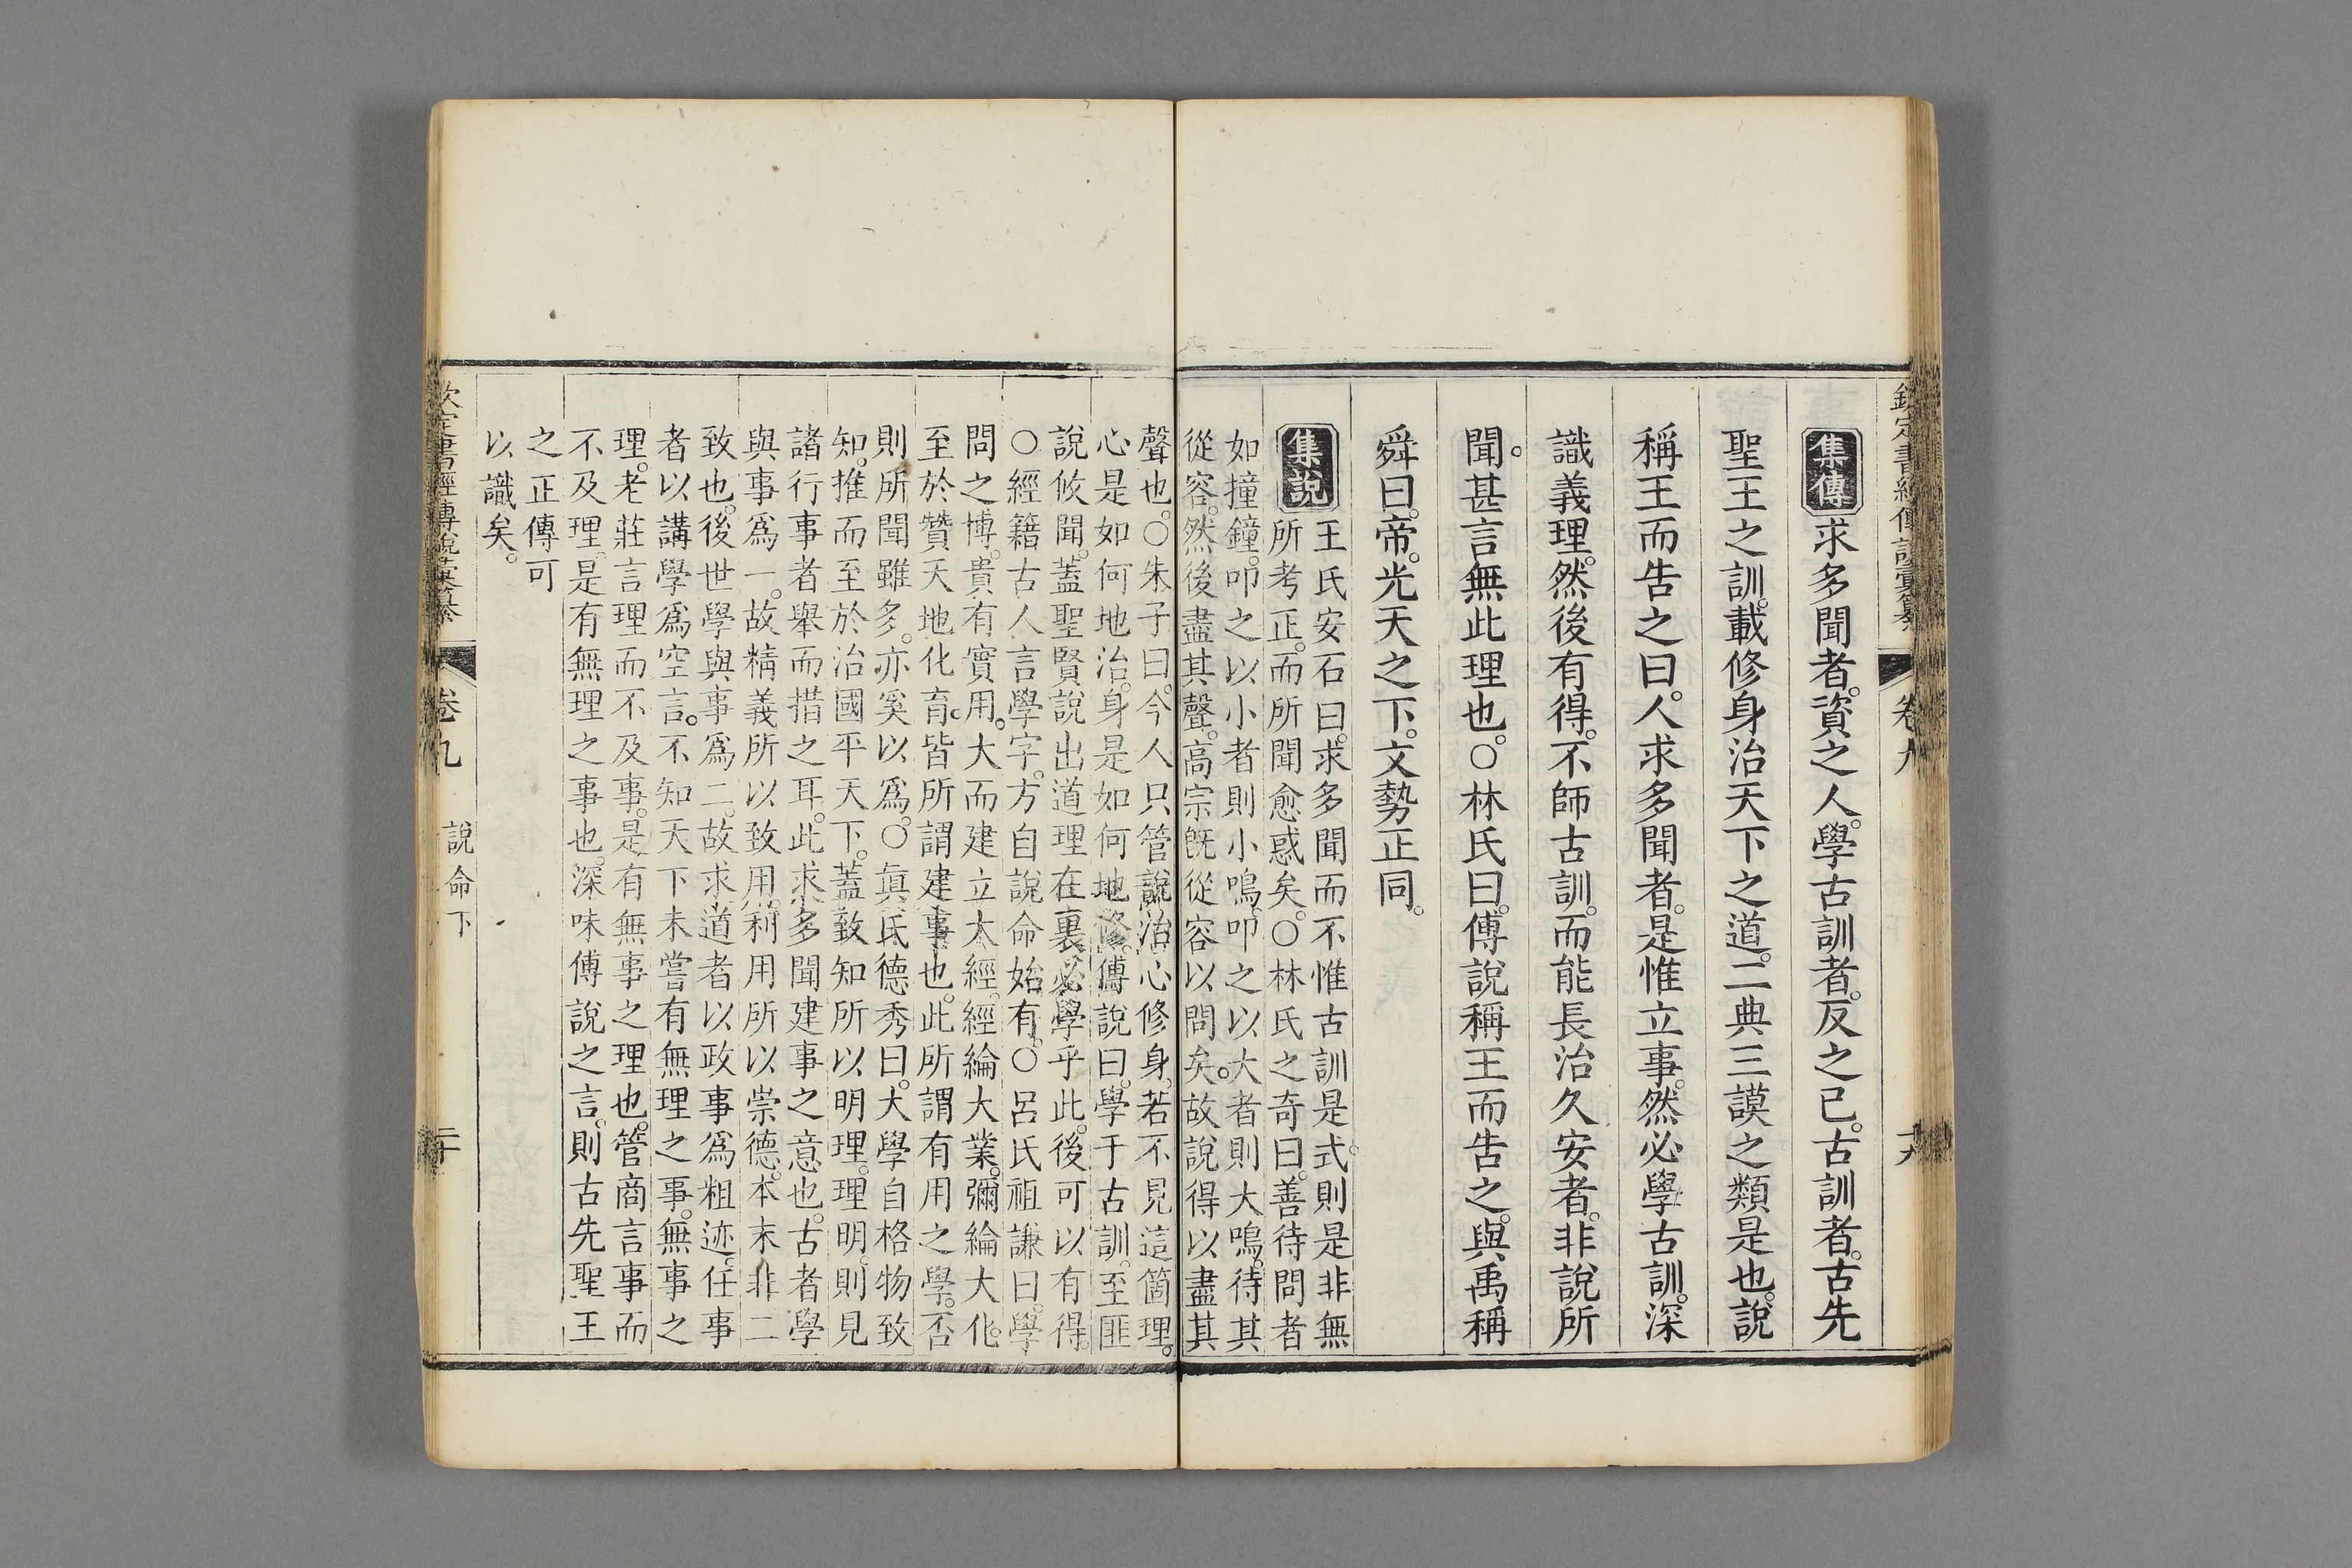 欽定書經傳說彙纂 卷九 十九
集傳 求多聞者。資之人。學古訓者。反之己。古訓者。古先
聖王之訓。載修身治天下之道。二典三謨之類是也。說
稱王而告之曰。人求多聞者。是惟立事。然必學古訓。深
識義理。然後有得。不師古訓。而能長治久安者。非說所
聞。甚言無此理也。○林氏曰。傅說稱王而告之。與禹稱
舜曰。帝。光天之下。文勢正同。
集說 王氏安石曰。求多聞而不惟古訓是式。則是非無
所考正。而所聞愈惑矣。○林氏之奇曰。善待問者
如撞鐘。叩之以小者則小鳴。叩之以大者則大鳴。待其
從容。然後盡其聲。高宗旣從容以問矣。故說得以盡其
聲也。○朱子曰。今人只管說治心修身。若不見這箇理。
心是如何地治。身是如何地修。傅說曰。學于古訓。至匪
說攸聞。蓋聖賢說出道理在裏。必學乎此。後可以有得。
○經籍古人言學字。方自說命始有。○呂氏祖謙曰。學
問之博。貴有實用。大而建立大經。經綸大業。彌綸大化。
至於贊天地化育。皆所謂建事也。此所謂有用之學。否
則所聞雖多。亦奚以爲。○眞氏德秀曰。大學自格物致
知。推而至於治國平天下。蓋致知所以明理。理明。則見
諸行事者舉而措之耳。此求多聞建事之意也。古者學
與事爲一。故精義所以致用。利用所以崇德。本末非二
致也。後世學與事爲二。故求道者以政事爲粗迹。任事
者以講學爲空言。不知天下未嘗有無理之事。無事之
理。老莊言理而不及事。是有無事之理也。管商言事而
不及理。是有無理之事也。深味傅說之言。則古先聖王
之正傳可
以識矣。
欽定書經傳說彙纂 卷九 說命下 二十